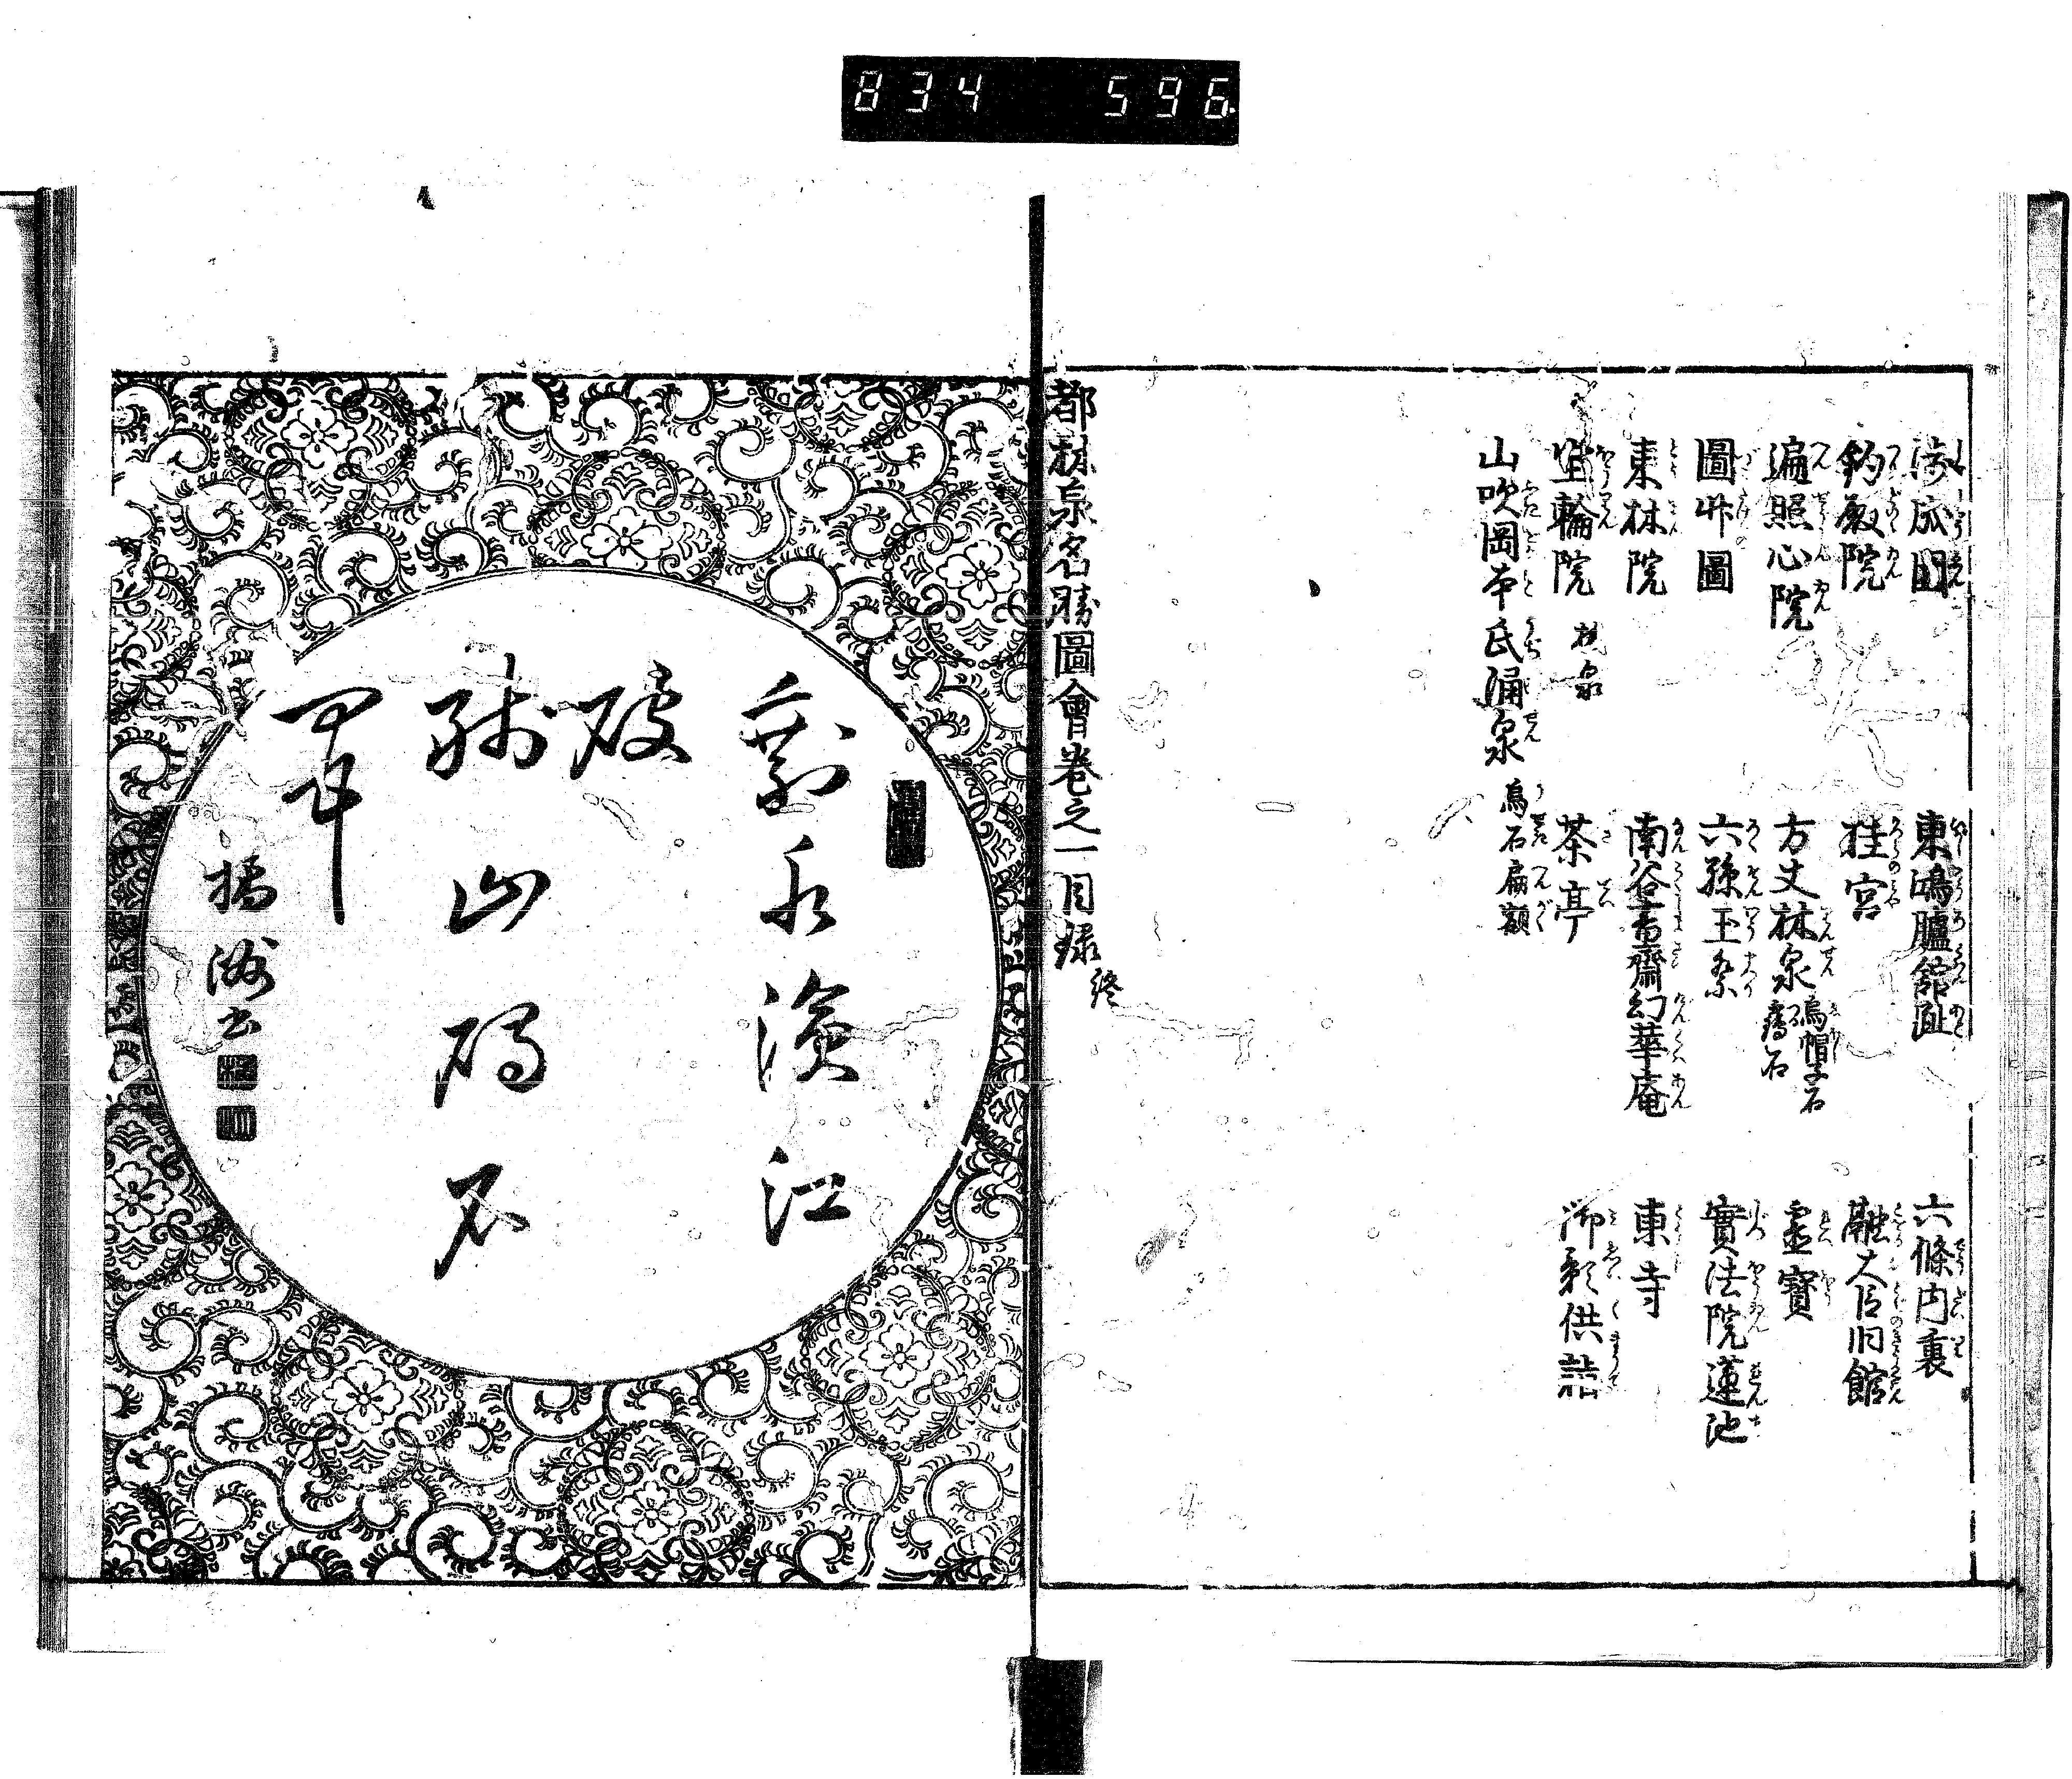 834 596
釣殿院
桂宮
融大臣旧館
遍照心院
方丈林泉
烏帽子石
靈寶
東鴻臚館趾
六條内裏
六孫王祭
實法院蓮池
東林院
南谷書齋幻華庵
東寺
宝輪院
林泉
茶亭
御影供詣
山吹岡本氏涌泉
烏石扁額
都林泉名勝圖會卷之一目録終
剩水滄江
破
殘山碣石
橘洲書